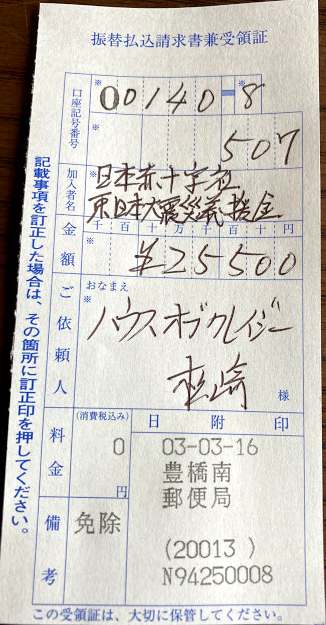 振替払込請求書兼受領証
口座記号番号
※
00140-※8
※
507
加入者名
※
日本赤十字社
東日本大震災義援金
金額
千百十万千百十円
¥25500
ご依頼人
おなまえ
※
ハウスオブクレイジー
松崎
様
料金
(消費税込み)
0
円
備考
免除
日附印
03-03-16
豊橋南
郵便局
(20013 )
N94250008
記載事項を訂正した場合は、その箇所に訂正印を押してください。
この受領証は、大切に保管してください。